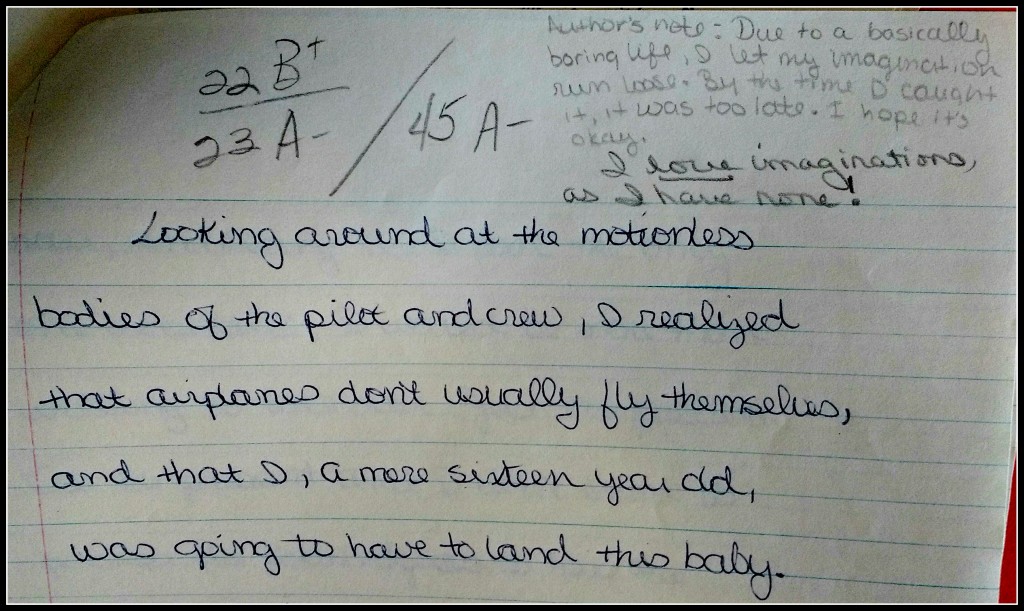 22 B+
23 A-
45 A-
Author's note: Due to a basically
boring life, I let my imagination
run loose. By the time I caught
it, it was too late. I hope it's
okay.
I love imaginations,
as I have none!
Looking around at the motionless
bodies of the pilot and crew, I realized
that airplanes don't usually fly themselves,
and that I, a mere sixteen year old,
was going to have to land this baby.